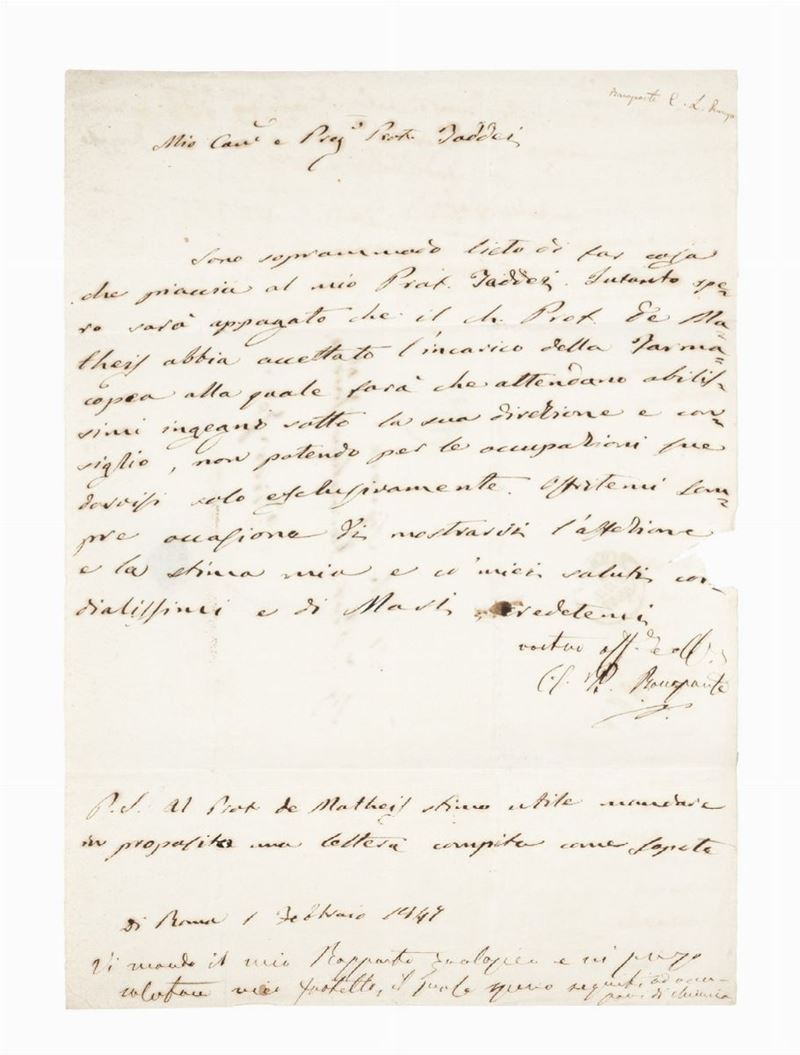 Bonaparte C. L.
Mio Car.º e Preg.º Prof. Taddei
Sono soprammodo lieto di far cosa
che piaccia al mio Prof. Taddei. Intanto spe=
ro sarà appagato che il ch. Prof. De Ma=
theis abbia accettato l'incarico della Farma=
copea alla quale farà che attendano abilis=
simi ingegni sotto la sua direzione e con=
siglio, non potendo per le occupazioni sue
darvisi solo esclusivamente. Offritemi sem=
pre occasione di mostrarvi l'affezione
e la stima mia e co' miei saluti cor=
dialissimi e di Masi credetemi
vostro aff.
C. L. Bonaparte
P.S. Al Prof. de Matheis stimo utile mandare
in proposito una lettera compita come sapete
Di Roma 1 Febbraio 1847
Vi mando il mio Rapporto zoologico e vi prego
fratello, il quale
di chimica